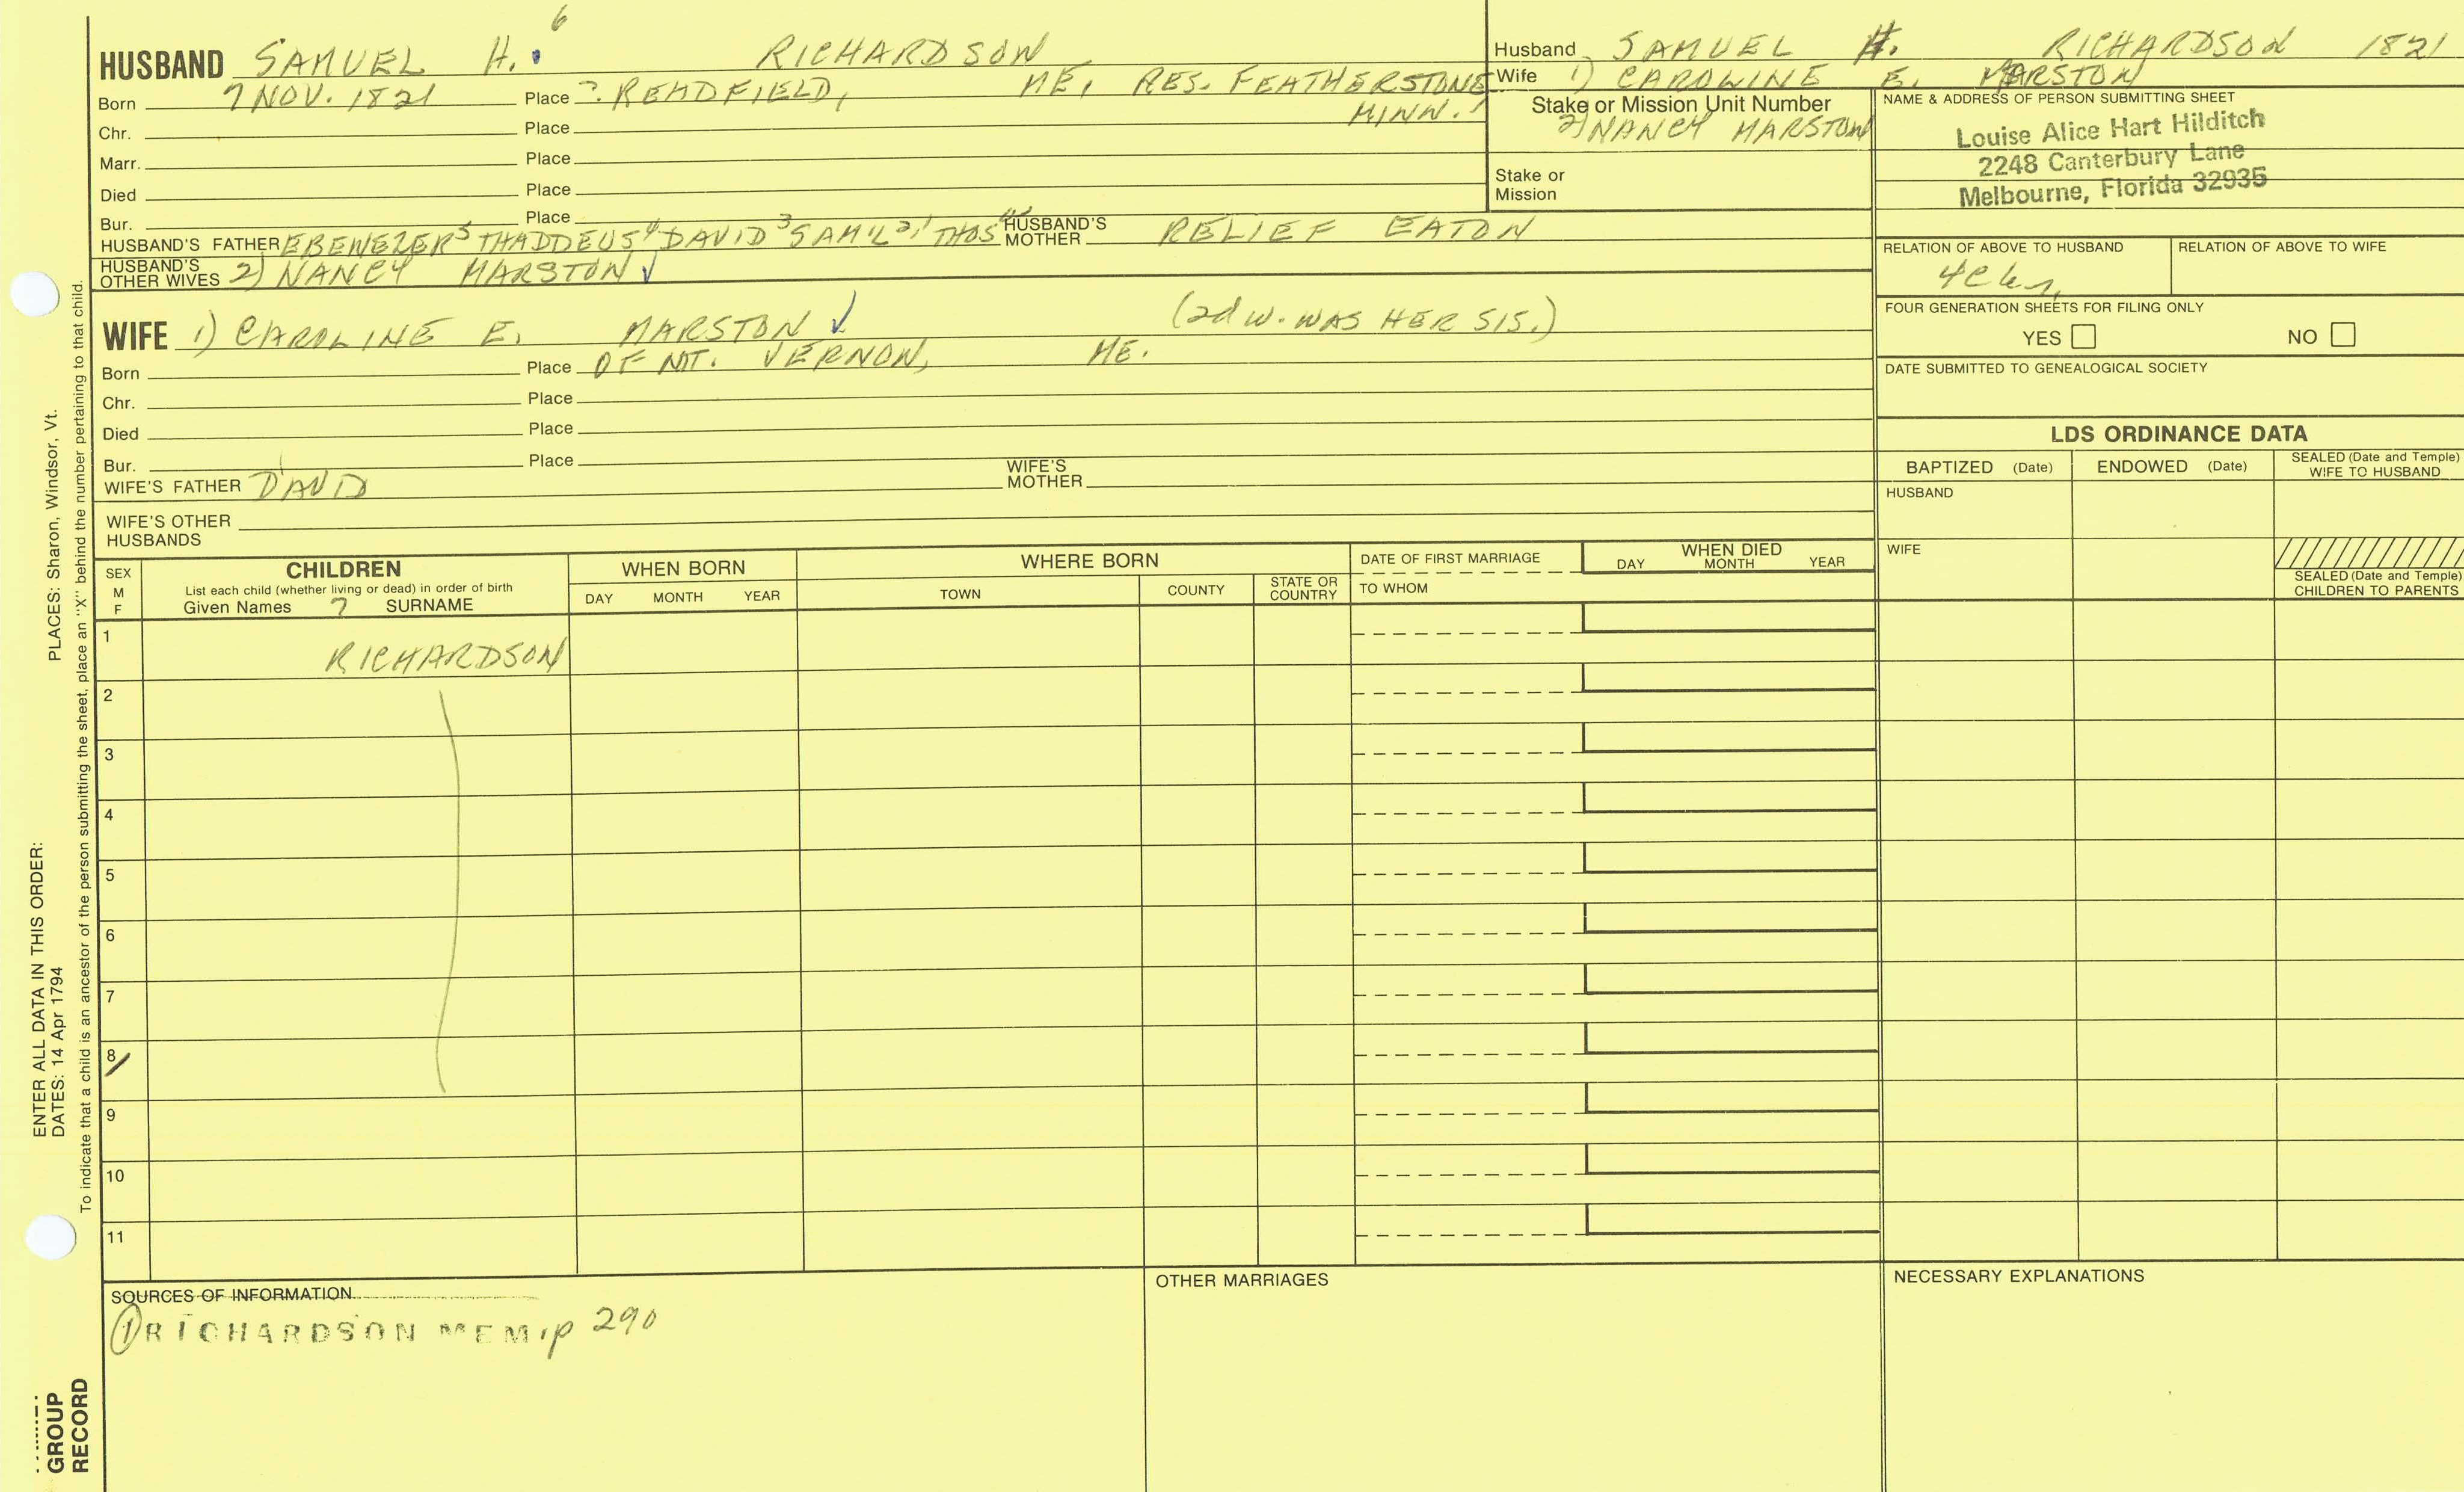 6
HUSBAND SAMUEL H. RICHARDSON
Born 7 NOV. 1821 Place ? READFIELD, ME, RES. FEATHERSTONE
MINN. 1
Chr. Place
Marr. Place
Died Place
Bur. Place
HUSBAND'S FATHER EBENEZER5 THADDEUS4 DAVID3 SAM'L2, THOS1 HUSBAND'S MOTHER RELIEF EATON
HUSBAND'S OTHER WIVES 2) NANCY MARSTON
WIFE 1) CAROLINE E. MARSTON (2d W. WAS HER SIS.)
Born Place OF MT. VERNON, ME.
Chr. Place
Died Place
Bur. Place
WIFE'S FATHER DAVID WIFE'S MOTHER
WIFE'S OTHER HUSBANDS
Husband SAMUEL H. RICHARDSON 1821
Wife 1) CAROLINE E. MARSTON
Stake or Mission Unit Number
2) NANCY MARSTON
Stake or Mission
NAME & ADDRESS OF PERSON SUBMITTING SHEET
Louise Alice Hart Hilditch
2248 Canterbury Lane
Melbourne, Florida 32935
RELATION OF ABOVE TO HUSBAND RELATION OF ABOVE TO WIFE
FOUR GENERATION SHEETS FOR FILING ONLY
YES NO
DATE SUBMITTED TO GENEALOGICAL SOCIETY
LDS ORDINANCE DATA
BAPTIZED (Date) ENDOWED (Date) SEALED (Date and Temple) WIFE TO HUSBAND
HUSBAND
WIFE
SEALED (Date and Temple) CHILDREN TO PARENTS
SEX M F
CHILDREN
List each child (whether living or dead) in order of birth
Given Names ? SURNAME
WHEN BORN
DAY MONTH YEAR
WHERE BORN
TOWN COUNTY STATE OR COUNTRY
DATE OF FIRST MARRIAGE
TO WHOM
WHEN DIED
DAY MONTH YEAR
1 RICHARDSON
2
3
4
5
6
7
8
9
10
11
SOURCES OF INFORMATION
1 RICHARDSON MEM, p 290
OTHER MARRIAGES
NECESSARY EXPLANATIONS
ENTER ALL DATA IN THIS ORDER:
DATES: 14 Apr 1794 PLACES: Sharon, Windsor, Vt.
To indicate that a child is an ancestor of the person submitting the sheet, place an "X" behind the number pertaining to that child.
GROUP
RECORD